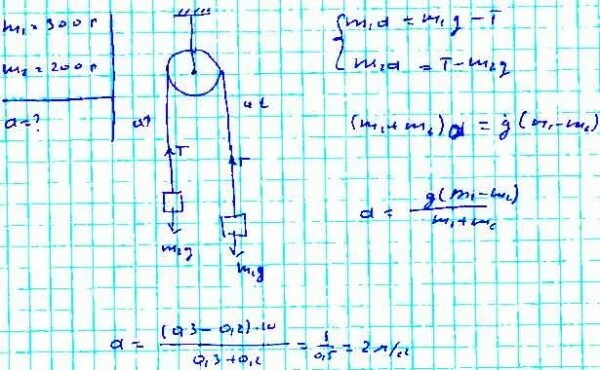 m₁ = 300 г
m₂ = 200 г
a = ?
a↑
a↓
T
T
m₂g
m₁g
m₁a = m₁g - T
m₂a = T - m₂g
(m₁ + m₂) a = g (m₁ - m₂)
a = g(m₁ - m₂) / m₁ + m₂
a = (0,3 - 0,2)·10 / 0,3 + 0,2 = 1 / 0,5 = 2 м/с²